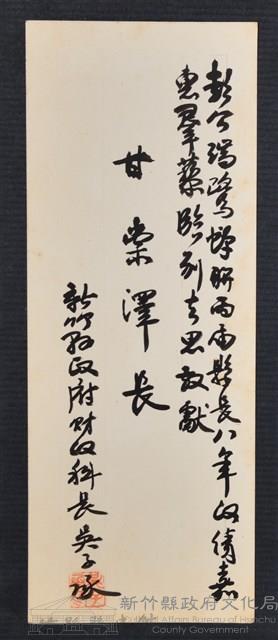 彭公瑞鷺蟬聯兩任縣長八年政績嘉
惠羣黎臨別去思敬獻
甘棠澤長
新竹縣政府財政科長吳子琢
新竹縣政府文化局
Cultural Affairs Bureau of Hsinchu
County Government